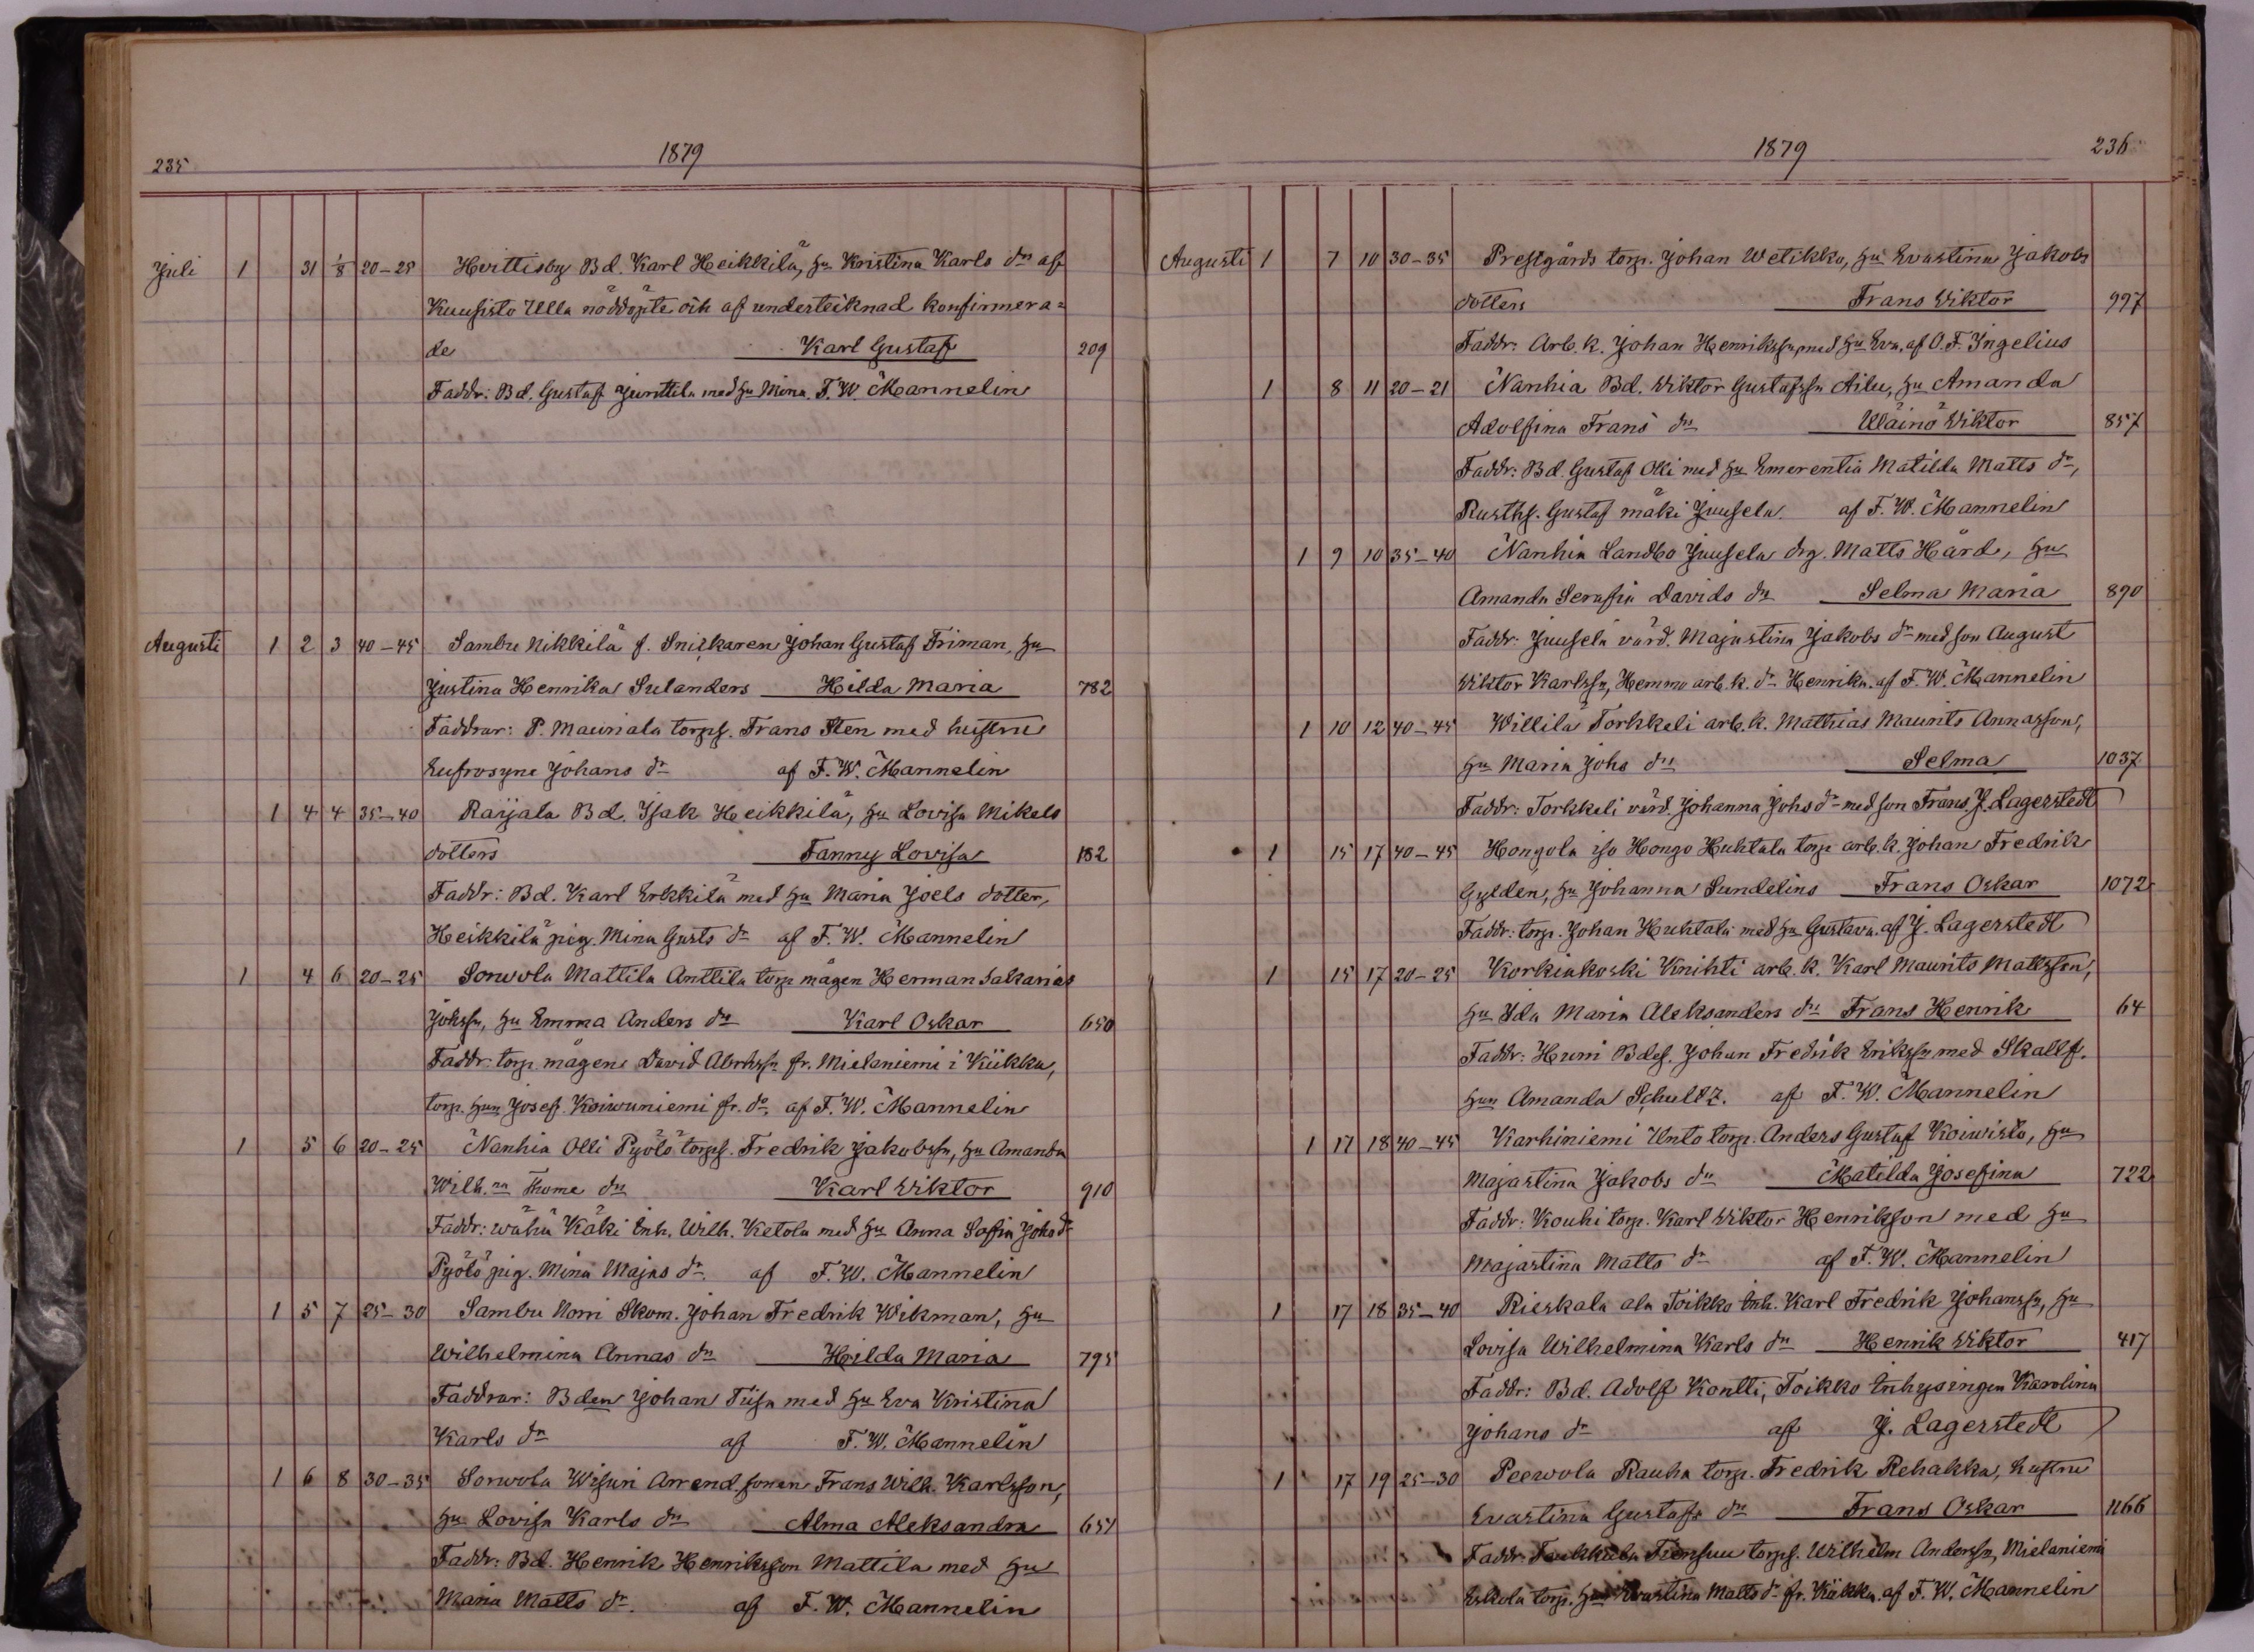 235
1879
Juli 1 31 1/8 20-25 Hvittisby Bd. Karl Heikkilä, hu Kristina Karls drs af
Kuusisto Ulla nöddöpte och af undertecknad konfirmera-
de Karl Gustaf 209
Faddr: Bd. Gustaf Junttila med hu Mina. F. W. Mannelin
Augusti 1 2 3 40-45 Sambu Nikkilä f. Snickaren Johan Gustaf Friman, hu
Justina Henrika Sulanders Hilda Maria 782
Faddrar: P. Mauriala torps. Frans Sten med hustru
Eufrosyne Johans dr af F. W. Mannelin
1 4 4 35-40 Raijala Bd. Isak Heikkilä, hu Lovisa Mikels
dotters Fanny Lovisa 182
Faddr: Bd. Karl Erkkilä med hu Maria Joels dotter,
Heikkilä pig. Mina Gusts dr af F. W. Mannelin
1 4 6 20-25 Sorwola Mattila Anttila torp mågen Herman Sakarias
Johssn, hu Emma Anders drs Karl Oskar 650
Faddr: torp. mågen David Abrhssn fr. Mielaniemi i Kiikka,
torp. hun Josef. Koiwuniemi fr. do af F. W. Mannelin
1 5 6 20-25 Nanhia Olli Pyölö torps. Fredrik Jakobssn, hu Amanda
Wilh.na Thome drs Karl Viktor 910
Faddr: wähä Käki Inh. Wilh. Ketola med hu Anna Sofia Johs dr
Pyölö pig. Mina Majas dr. af F. W. Mannelin
1 5 7 25-30 Sambu Norri Skom. Johan Fredrik Wikman, hu
Wilhelmina Annas drs Hilda Maria 795
Faddrar: Bden Johan Tiisa med hu Eva Kristina
Karls dr af F. W. Mannelin
1 6 8 30-35 Sorwola Wisuri Arrend. sonen Frans Wilh. Karlsson,
hu Lovisa Karls drs Alma Aleksandra 651
Faddr: Bd. Henrik Henriksson Mattila med hu
Maria Matts dr. af F. W. Mannelin
1879
236
Augusti 1 7 10 30-35 Prestgårds torp. Johan Wetikko, hu Evastina Jakobs
dotters Frans Viktor 997
Faddr: Arb. k. Johan Henrikssn, med hu Eva. af O. F. Ingelius
1 8 11 20-21 Nanhia Bd. Viktor Gustafssn Ailu, hu Amanda
Adolfina Frans drs Wäinö Viktor 857
Faddr: Bd. Gustaf Oli med hu Emerentia Matilda Matts dr,
Rusths. Gustaf mäki Juusela. af F. W. Mannelin
1 9 10 35-40 Nanhia Landbo Juusela drg. Matts Hård, hu
Amanda Serafia Davids drs Selma Maria 890
Faddr: Juusela värd. Majastina Jakobs dr med son August
Viktor Karlssn, Hemmo arb. k. dr Henrika. af F. W. Mannelin
1 10 12 40-45 Willilä Torkkeli arb. k. Mathias Maurits Annasson,
hu Maria Johs drs Selma 1037
Faddr: Torkkeli värd. Johanna Johs dr med son Frans. J. Lagerstedt
1 15 17 40-45 Hongola iso Hongo Huhtala torp arb. k. Johan Fredrik
Gylden, hu Johanna Sundelins Frans Oskar 1072
Faddr: torp. Johan Huhtala med hu Gustava. af J. Lagerstedt
1 15 17 20-25 Korkiakoski Knihti arb. k. Karl Maurits Mattsson,
hu Ida Maria Aleksanders drs Frans Henrik 64
Faddr: Huni Bdes. Johan Fredrik Erikssn med Skallf.
hun Amanda Schultz. af F. W. Mannelin
1 17 18 40-45 Karhiniemi Unto torp. Anders Gustaf Koiwisto, hu
Majastina Jakobs drs Matilda Josefina 722
Faddr: Kouhi torp. Karl Viktor Henrikson med hu
Majastina Matts dr af F. W. Mannelin
1 17 18 35-40 Rieskala ala Toikko Inh. Karl Fredrik Johanssn, hu
Lovisa Wilhelmina Karls drs Henrik Viktor 417
Faddr: Bd. Adolf Kontti, Toikko Inhysingen Karolina
Johans dr af J. Lagerstedt
1 17 19 25-30 Peewola Rauha torp. Fredrik Rehakka, hustru
Evastina Gustafs drs Frans Oskar 1166
Faddr: Tiensuu torps. Wilhelm Anderssn, Mielaniemi
Eskola torp. hun Evastina Matts dr fr. Kiikka. af F. W. Mannelin